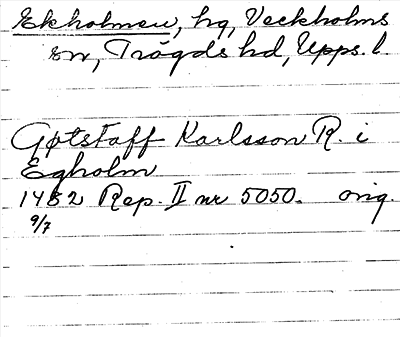 Ekholmen, hg, Veckholms
sn, Trögds hd, Upps. l.
Gøtstaff Karlsson R. i
Egholm
1482 Rep. II nr 5050. orig.
9/7